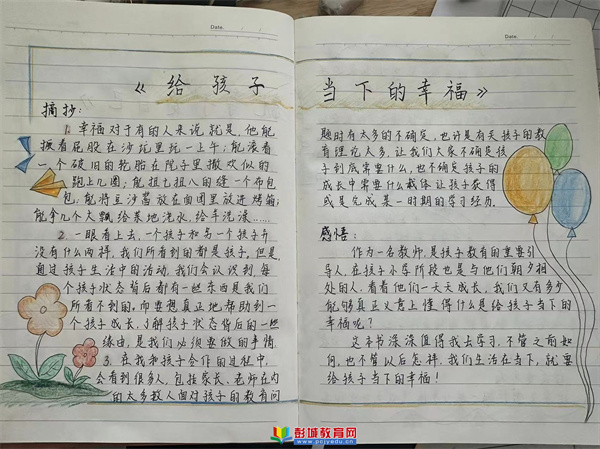 Date.
《给孩子
摘抄：
1. 幸福对于有的人来说就是，他能
撅着屁股在沙坑里玩一上午；能滚着
一个破旧的轮胎在院子里撒欢似的
跑上几圈；能扭七扭八的缝一个布包
包，能将豆沙酱放在面团里放进烤箱；
能拿几个大瓢给菜地浇水，给手洗澡……
2. 一眼看上去，一个孩子和另一个孩子并
没有什么两样，我们所看到的都是孩子。但是，
通过孩子生活中的活动，我们会认识到，每
个孩子状态背后都有一些东西是我们
所看不到的。而要想真正地帮助到一
个孩子成长，了解孩子状态背后的一些
缘由，是我们必须要做的事情
3. 在我和孩子合作的过程中，
会看到很多人，包括家长、老师在内
的大多数人面对孩子的教育问
Date.
当下的幸福》
题时有太多的不确定，也许是有关孩子的教
育理论太多，让我们大家不确定孩
子到底需要什么，也不确定孩子的
成长中需要什么载体让孩子获得
或是完成某一时期的学习经历。
感悟：
作为一名教师，是孩子教育的重要引
导人，在孩子小学阶段也是与他们朝夕相
处的人，看着他们一天天成长，我们又有多少
能够真正意义上懂得什么是给孩子当下的
幸福呢？
这本书深深值得我去学习，不管之前如
何，也不管以后怎样，我们生活在当下，就要
给孩子当下的幸福！
彭城教育网
www.pcjyedu.cn